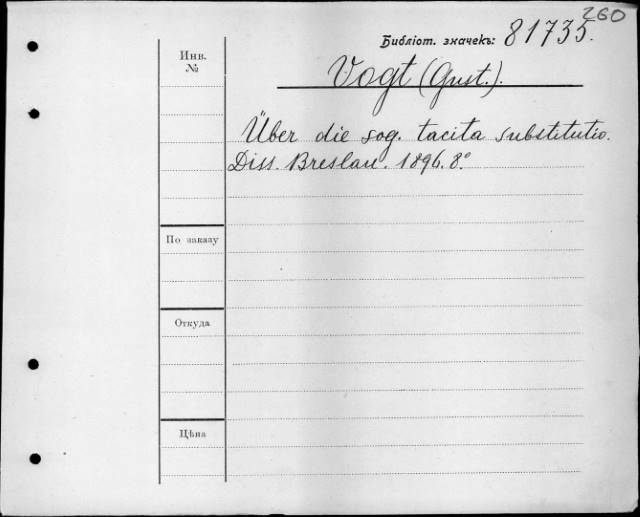 260
Библіот. значекъ: 81735.
Инв. №
Vogt (Gust.).
Über die sog. tacita substitutio.
Diss. Breslau. 1896. 8°
По заказу
Откуда
Цѣна